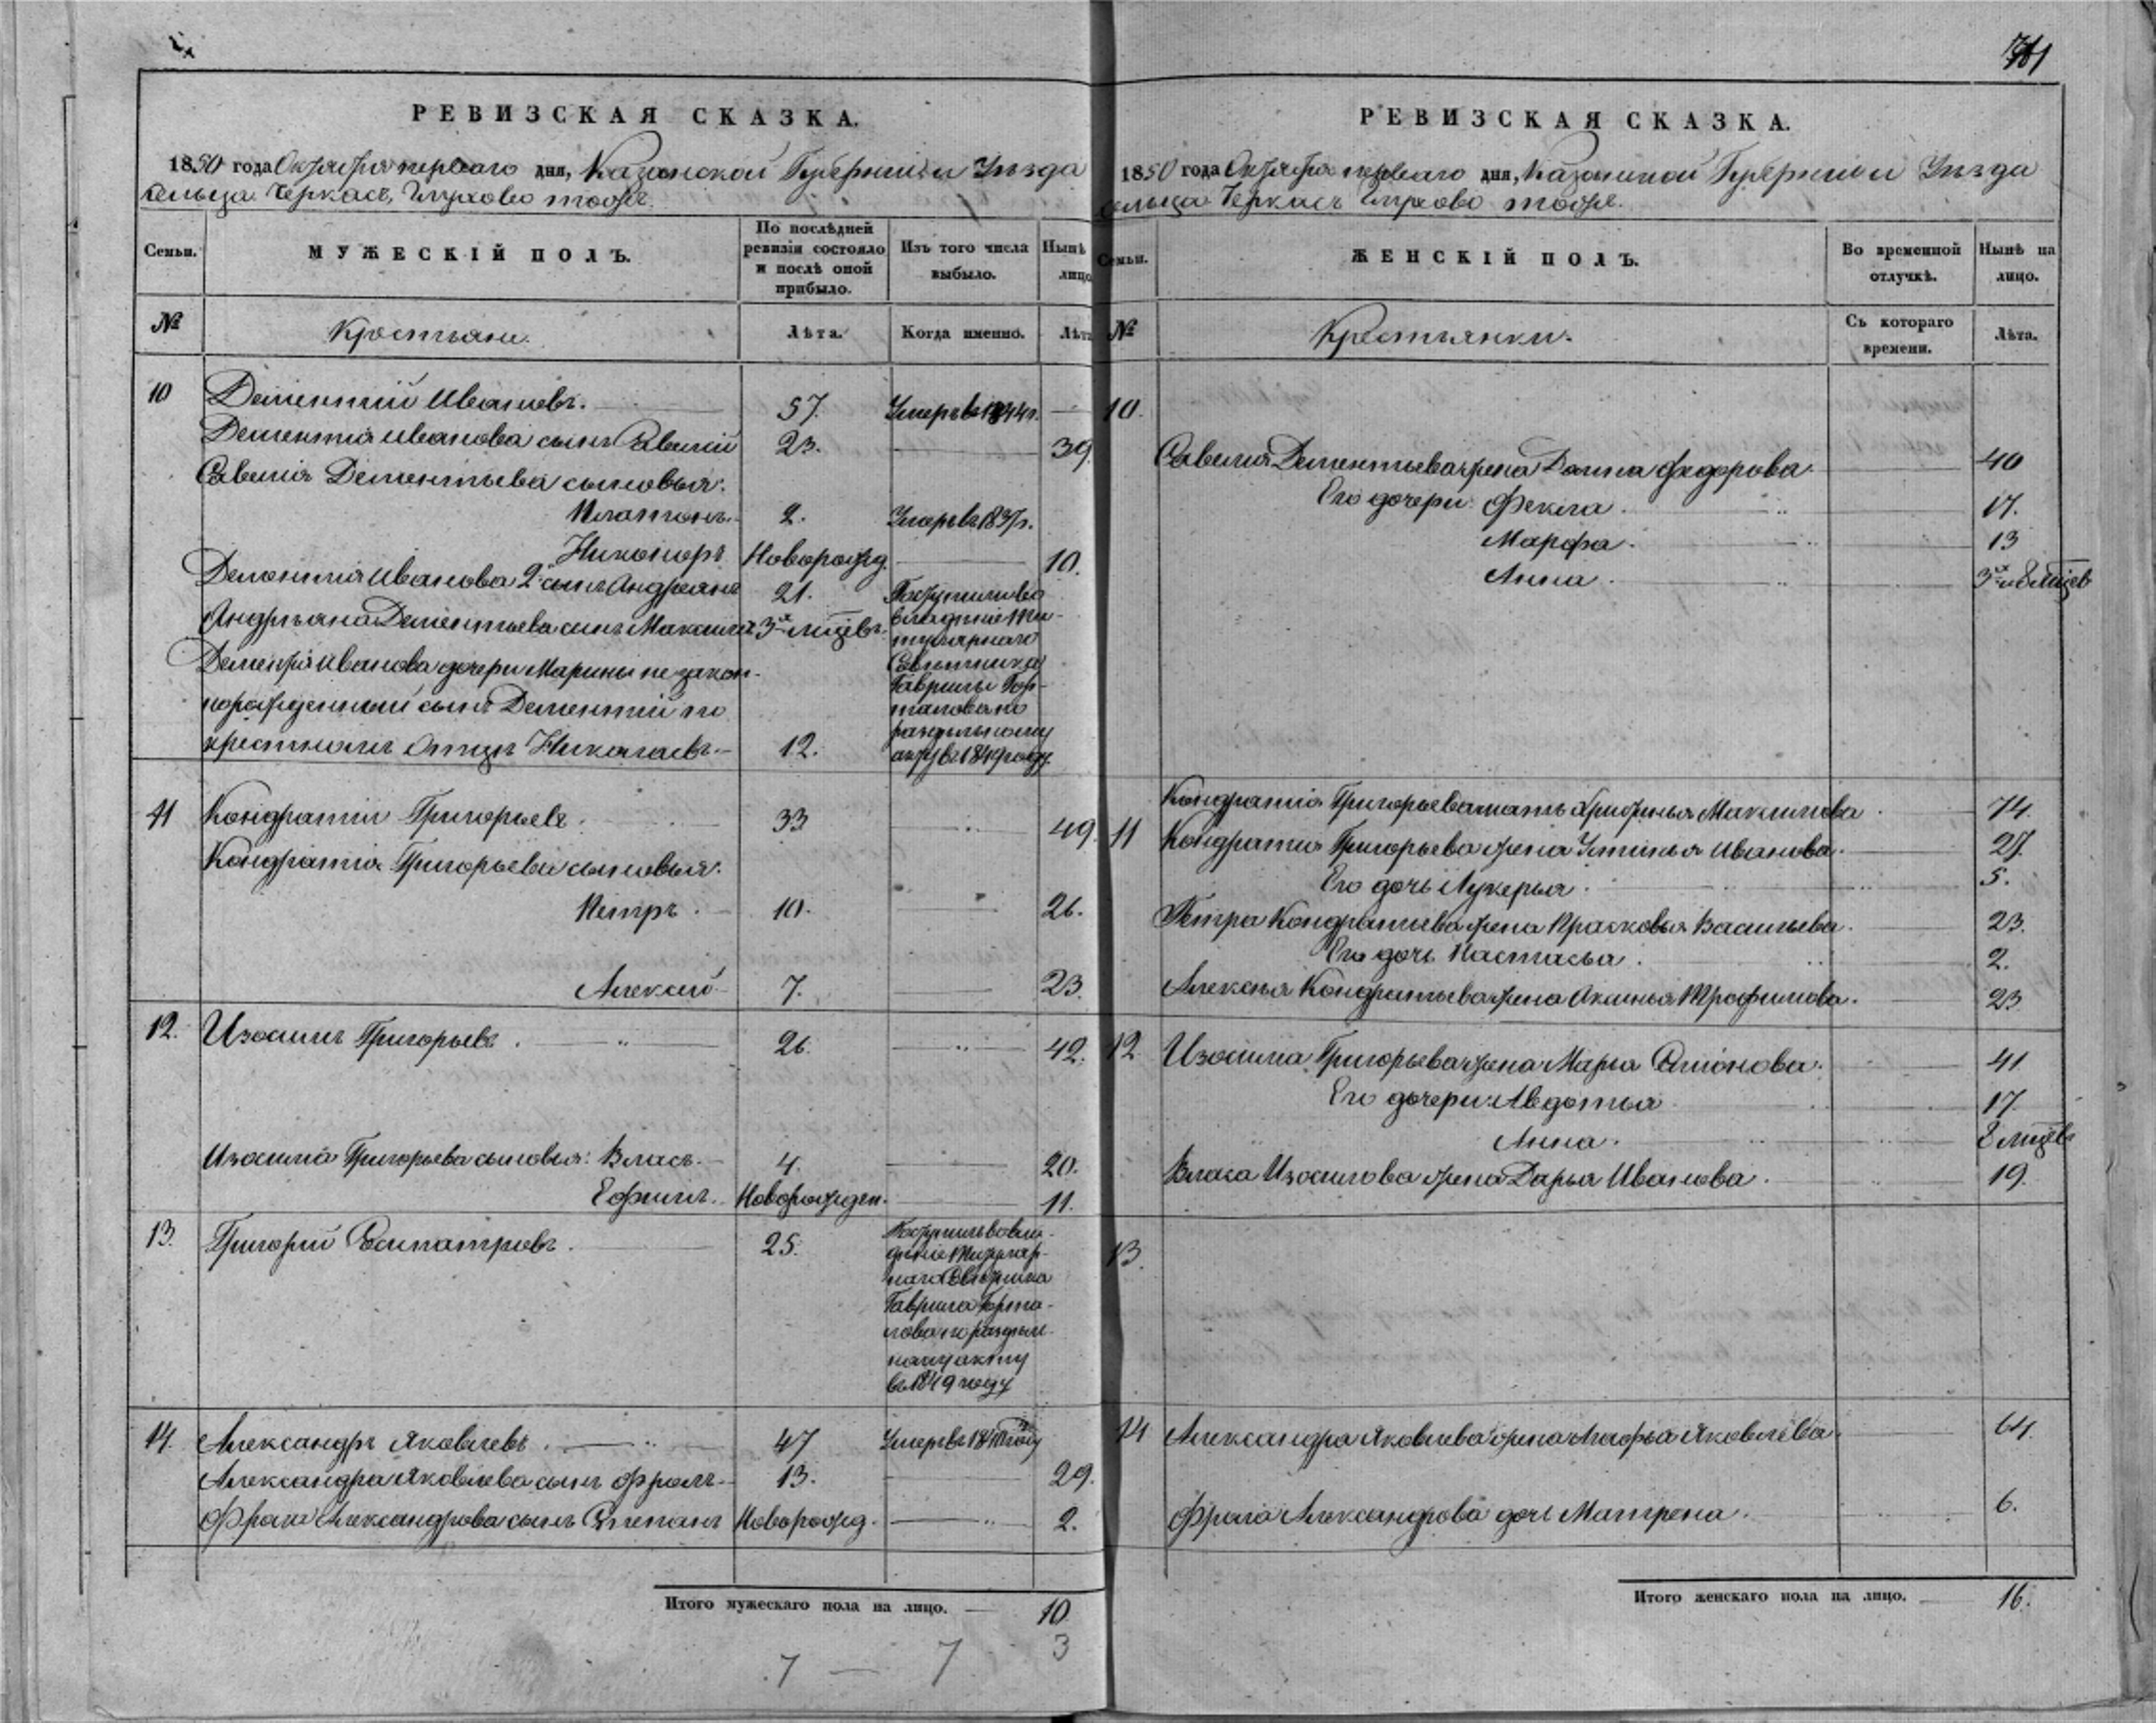 РЕВИЗСКАЯ СКАЗКА.
1850 года Октября первого дня, Казанской Губернии и Уезда
сельца Черкасъ, Глухово тоожъ.
Семьи.
МУЖЕСКІЙ ПОЛЪ.
По послѣдней ревизіи состояло и послѣ оной прибыло.
Изъ того числа выбыло.
Нынѣ лицо
№
Крестьяне.
Лѣта.
Когда именно.
Лѣта
10 Дементій Ивановъ. 57. Умеръ въ 1844 г.
Дементія Иванова сынъ Савелій 23. 39.
Савелія Дементьева сыновья:
Платонъ 2. Умеръ въ 1837 г.
Никоноръ Новорожд. 10.
Дементія Иванова 2й сынъ Андреянъ 21. Поступили во
Андрѣяна Дементьева сынъ Максимъ 3х мцевъ. владѣніе Ти-
тулярнаго
Дементія Иванова дочери Марины не закон- Совѣтника
Гаврилы Гор-
норожденный сынъ Дементій по талова по
раздѣльному
крестномъ отцѣ Николаевъ. 12. акту въ 1849 году.
11 Кондратій Григорьевъ. 33 49.
Кондратія Григорьева сыновья:
Петръ. 10. 26.
Алексѣй 7. 23.
12. Изосимъ Григорьевъ. 26. 42.
Изосима Григорьева сыновья: Власъ. 4. 20.
Ефимъ. Новорожден. 11.
13. Григорий Еспатровъ. 25. Поступилъ во вла-
дѣніе Титуляр-
наго Совѣтника
Гаврила Горта-
лова по раздѣль-
ному акту
въ 1849 году
14. Александръ Яковлевъ. 47 Умеръ въ году
Александра Яковлева сынъ Фролъ 13. 29.
Фрола Александрова сынъ Степанъ Новорожд. 2.
Итого мужескаго пола на лицо. 10.
7 — 7 3
РЕВИЗСКАЯ СКАЗКА.
1850 года Октября первого дня, Казанской Губернии и Уезда
сельца Черкасъ Глухово тоожъ.
Семьи.
ЖЕНСКІЙ ПОЛЪ.
Во временной отлучкѣ.
Нынѣ на лицо.
№
Крестьянки.
Съ котораго времени.
Лѣта.
10.
Савелия Дементьева жена Домна Федорова 40
Его дочери: Фекла. 17.
Марфа. 13
Анна. 3х и 8 мцев
Кондратія Григорьева мать Максимова 74.
11 Кондратия Григорьева жена Устинья Иванова. 27.
Его дочь Лукерья. 5.
Петра Кондратьева жена Прасковья Васильева. 23.
Его дочь Настасья. 2.
Алексѣя Кондратьева жена Аксинья Трофимова. 23
12. Изосима Григорьева жена Марья Семіонова. 41
Его дочери: Авдотья 17.
Анна. 8 мцевъ
Власа Изосимова жена Дарья Иванова. 19.
13.
14 Александра Яковлева жена Агафья Яковлева 64.
Фрола Александрова дочь Матрена. 6.
Итого женскаго пола на лицо. 16.